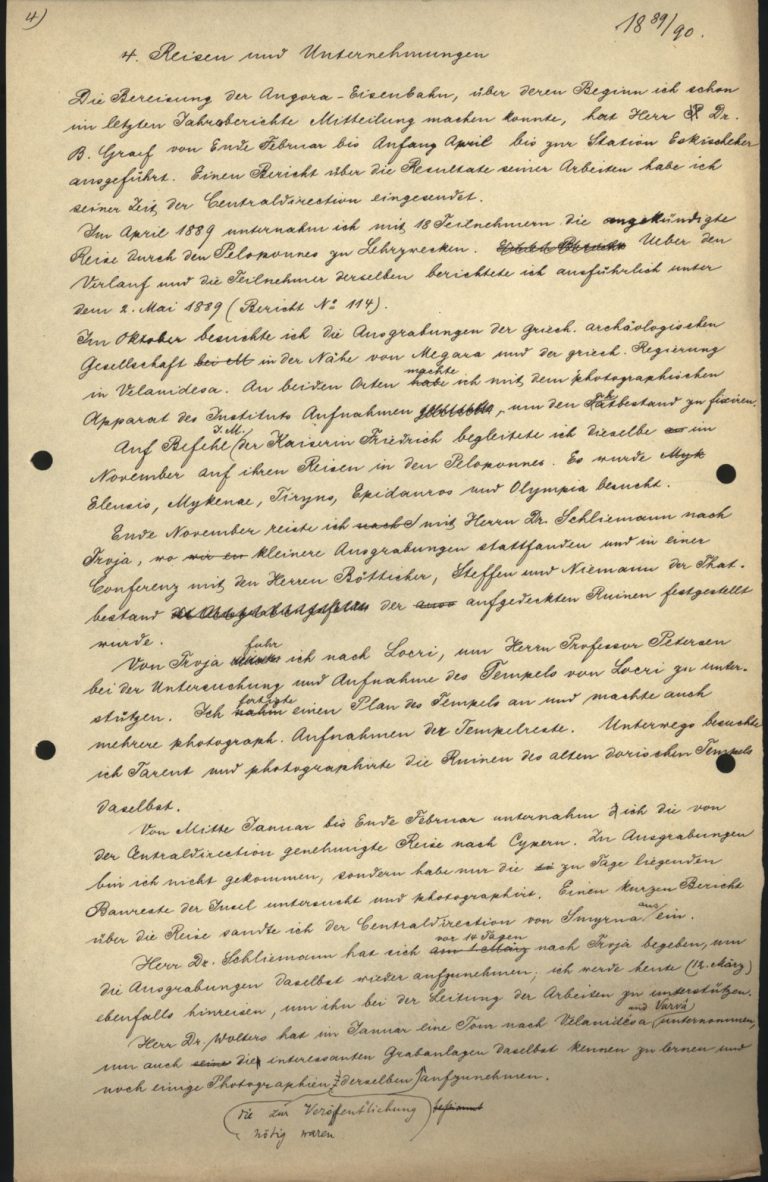 4)
18 89/90.
4. Reisen und Unternehmungen
Die Bereisung der Angora-Eisenbahn, über deren Beginn ich schon
im letzten Jahresberichte Mitteilung machen konnte, hat Herr Dr.
B. Graef von Ende Februar bis Anfang April bis zur Station Eskischeher
ausgeführt. Einen Bericht über die Resultate seiner Arbeiten habe ich
seiner Zeit der Centraldirection eingesendet.
Im April 1889 unternahm ich mit 18 Teilnehmern die angekündigte
Reise durch den Peloponnes zu Lehrzwecken. Ueber den
Verlauf und die Teilnehmer derselben berichtete ich ausführlich unter
dem 2. Mai 1889 (Bericht No 114).
Im Oktober besuchte ich die Ausgrabungen der griech. archäologischen
Gesellschaft bei M in der Nähe von Megara und der griech. Regierung
machte
in Velanidesa. An beiden Orten habe ich mit dem photographischen
Apparat des Instituts Aufnahmen, um den Thatbestand zu fixiren.
I. M.
Auf Befehl der Kaiserin Friedrich begleitete ich dieselbe im
November auf ihren Reisen in den Peloponnes. Es wurde Myk
Eleusis, Mykenae, Tiryns, Epidauros und Olympia besucht.
Ende November reiste ich nach mit Herrn Dr. Schliemann nach
Troja, wo wir en kleinere Ausgrabungen stattfanden und in einer
Conferenz mit den Herren Bötticher, Steffen und Niemann der That-
bestand der ausg aufgedeckten Ruinen festgestellt
wurde.
fuhr
Von Troja ich nach Locri, um Herrn Professor Petersen
bei der Untersuchung und Aufnahme des Tempels von Locri zu unter-
fertigte
stützen. Ich nahm einen Plan des Tempels an und machte auch
mehrere photograph. Aufnahmen der Tempelreste. Unterwegs besuchte
ich Tarent und photographirte die Ruinen des alten dorischen Tempels
daselbst.
Von Mitte Januar bis Ende Februar unternahm ich die von
der Centraldirection genehmigte Reise nach Cypern. Zu Ausgrabungen
bin ich nicht gekommen, sondern habe nur die zu Tage liegenden
Baureste der Insel untersucht und photographirt. Einen kurzen Bericht
über die Reise sandte ich der Centraldirection von Smyrna aus ein.
vor 14 Tagen
Herr Dr. Schliemann hat sich am 1 März nach Troja begeben, um
die Ausgrabungen daselbst wieder aufzunehmen; ich werde heute (12. März)
ebenfalls hinreisen, um ihn bei der Leitung der Arbeiten zu unterstützen.
und Varvá
Herr Dr. Wolters hat im Januar eine Tour nach Velanidésa unternommen,
um auch seine die interessanten Grabanlagen daselbst kennen zu lernen und
noch einige Photographien derselben aufzunehmen.
die zur Veröffentlichung bestimmt
nötig waren